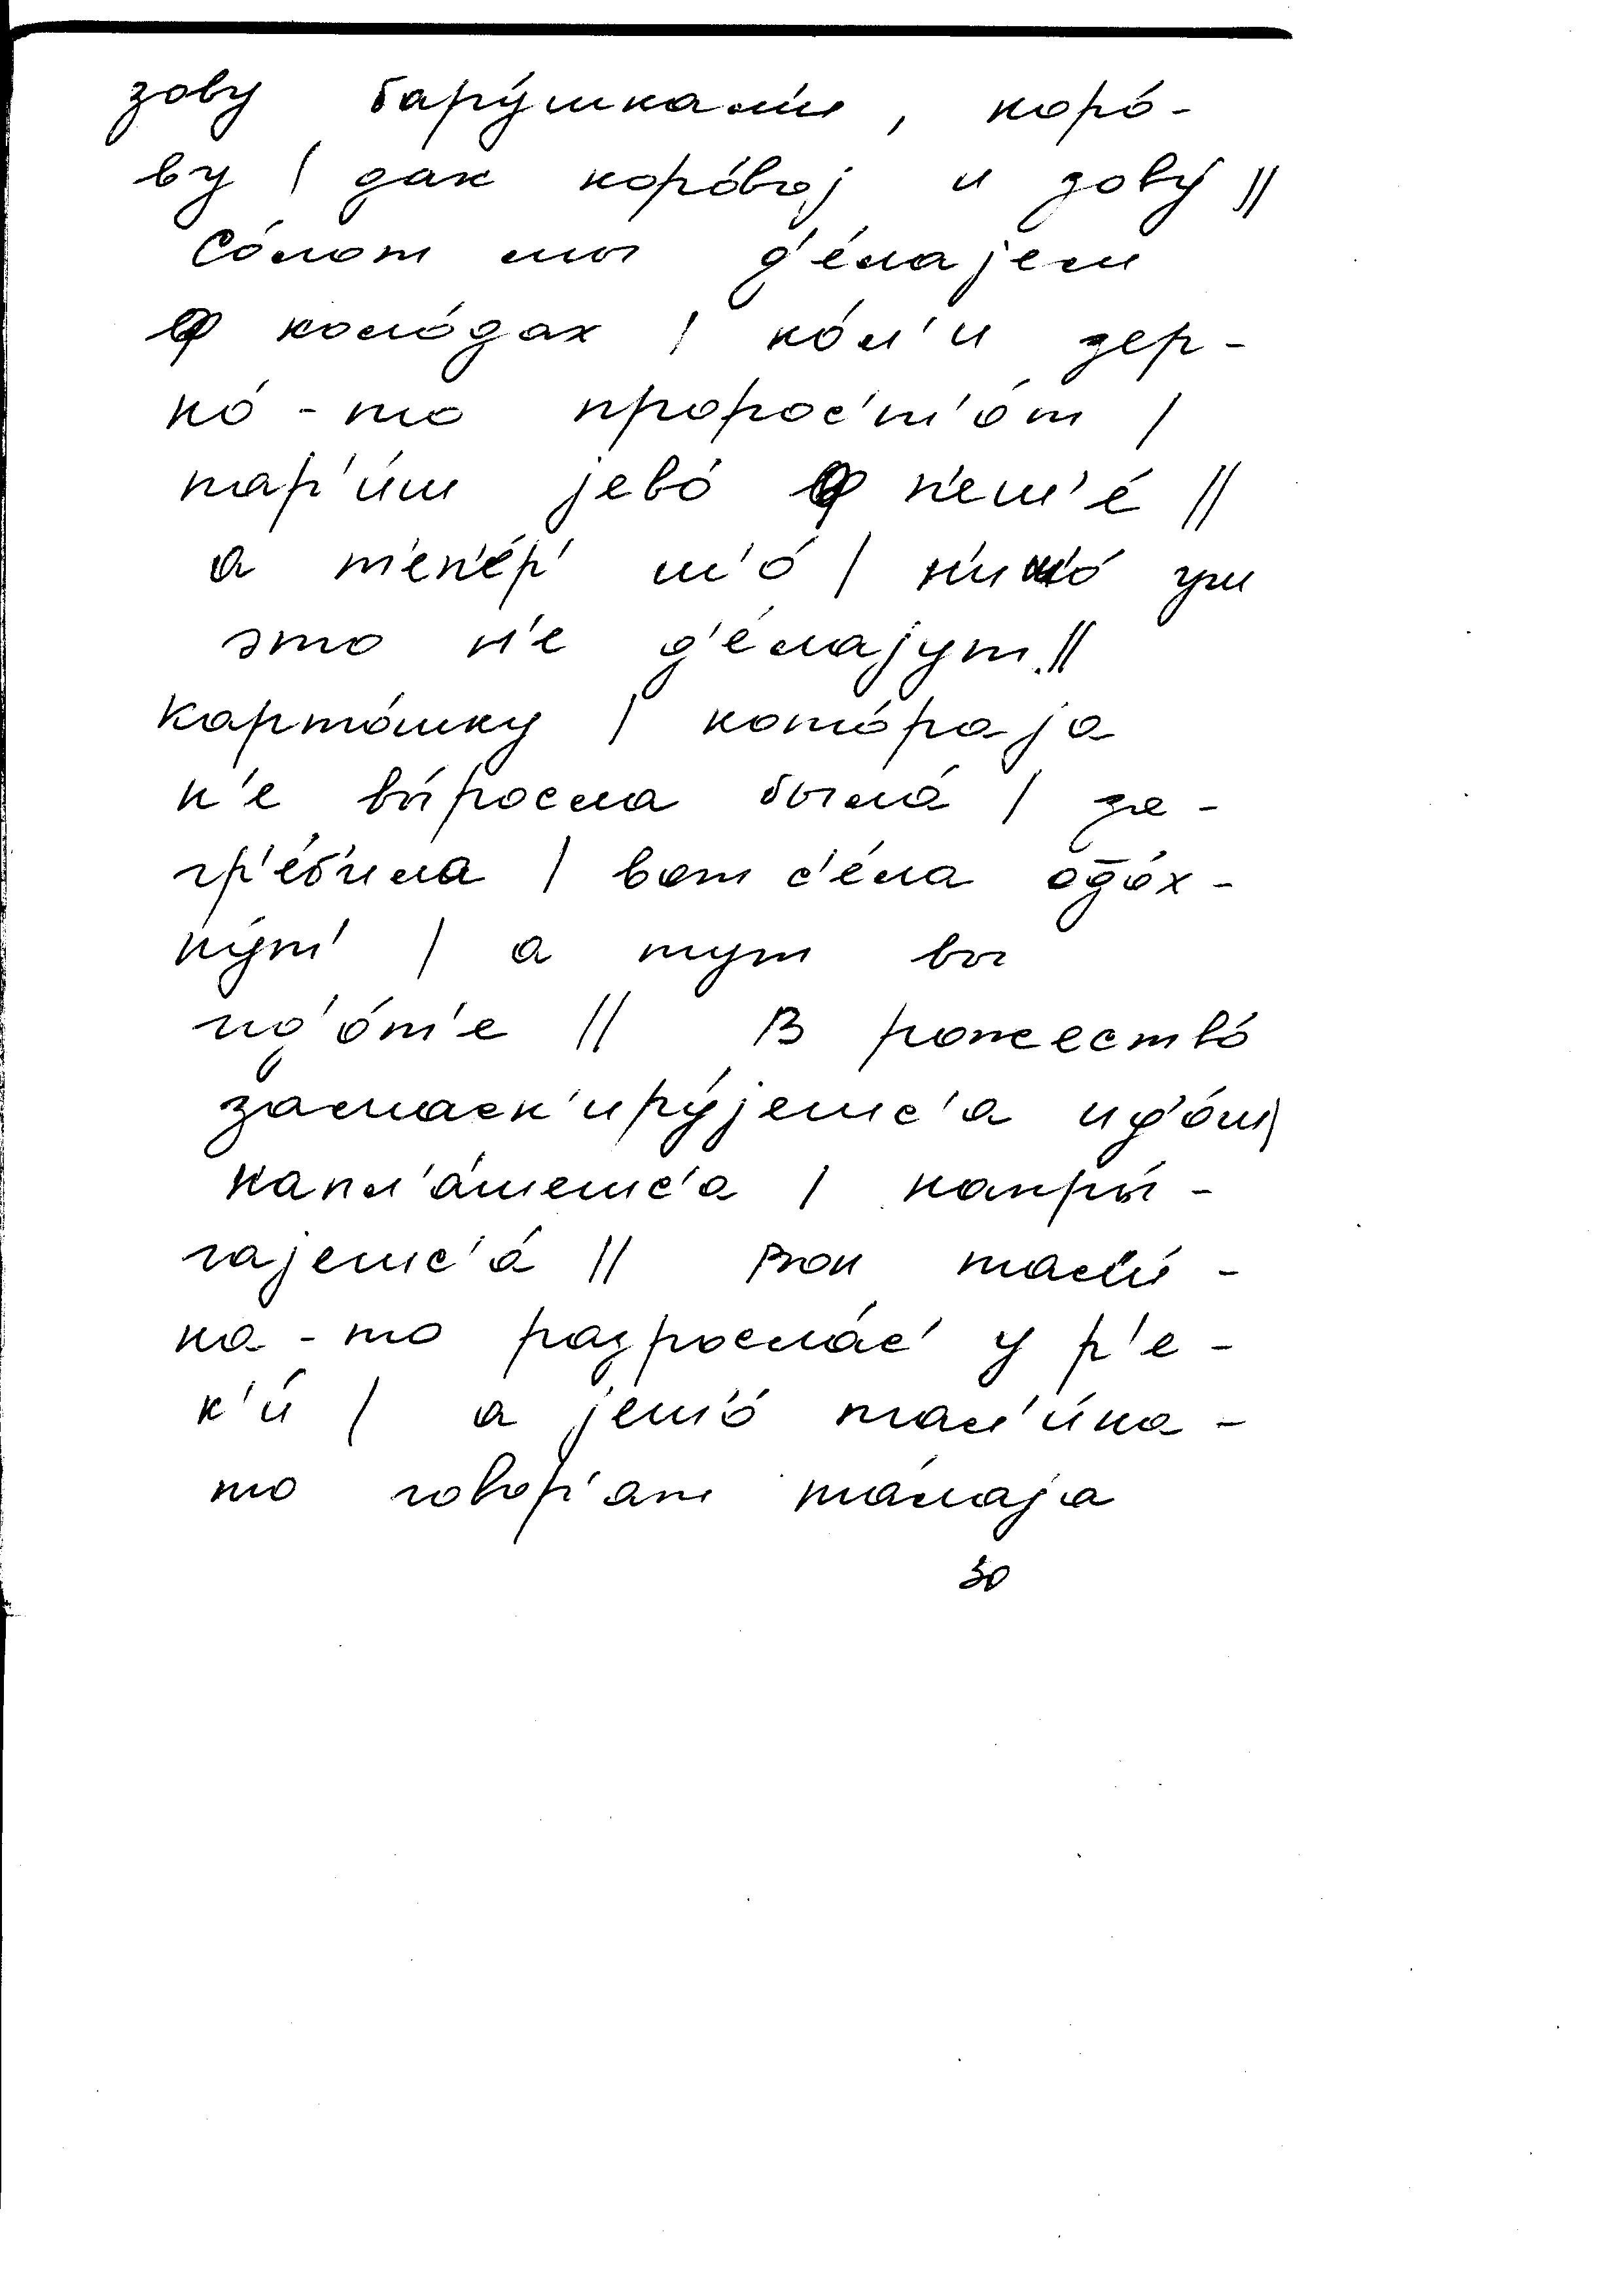 зову бару́шкам'и, коро́-
ву / дак коро́воj и зову́ //
Со́лот мы д'е́лаjем
ф коло́дах / ко́л'и зер-
но́-то пророс'т'о́т /
пар'и́м jево́ ф п'еч'е́ //
а т'еп'е́р' ч'о́ / н'ич'о́ уш
это н'е д'е́лаjут. //
картошку / кото́раjа
н'е вы́росла была́ / за-
гр'е́б'ила / вот с'е́ла од̄о́х-
ну́т' / а тут вы
ид'о́т'е // В рожество́
замаск'иру́jемс'а ид'о́м /
напл'а́шемс'а / напры́-
гаjемс'а́ // Вон тал'и́-
на-то разросла́с' у р'е-
к'и́ / а jещ'о́ тал'и́на-
то говор'ат та́лаjа
30